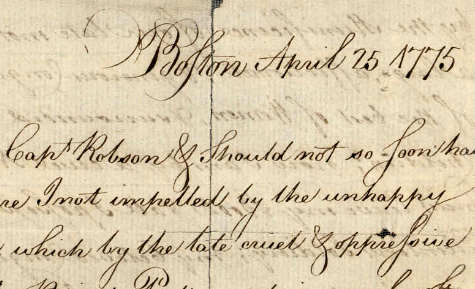 Boston April 25 1775
Capt Robson & Should not so soon ha
re I not impelled by the unhappy
which by the late cruel & oppressive